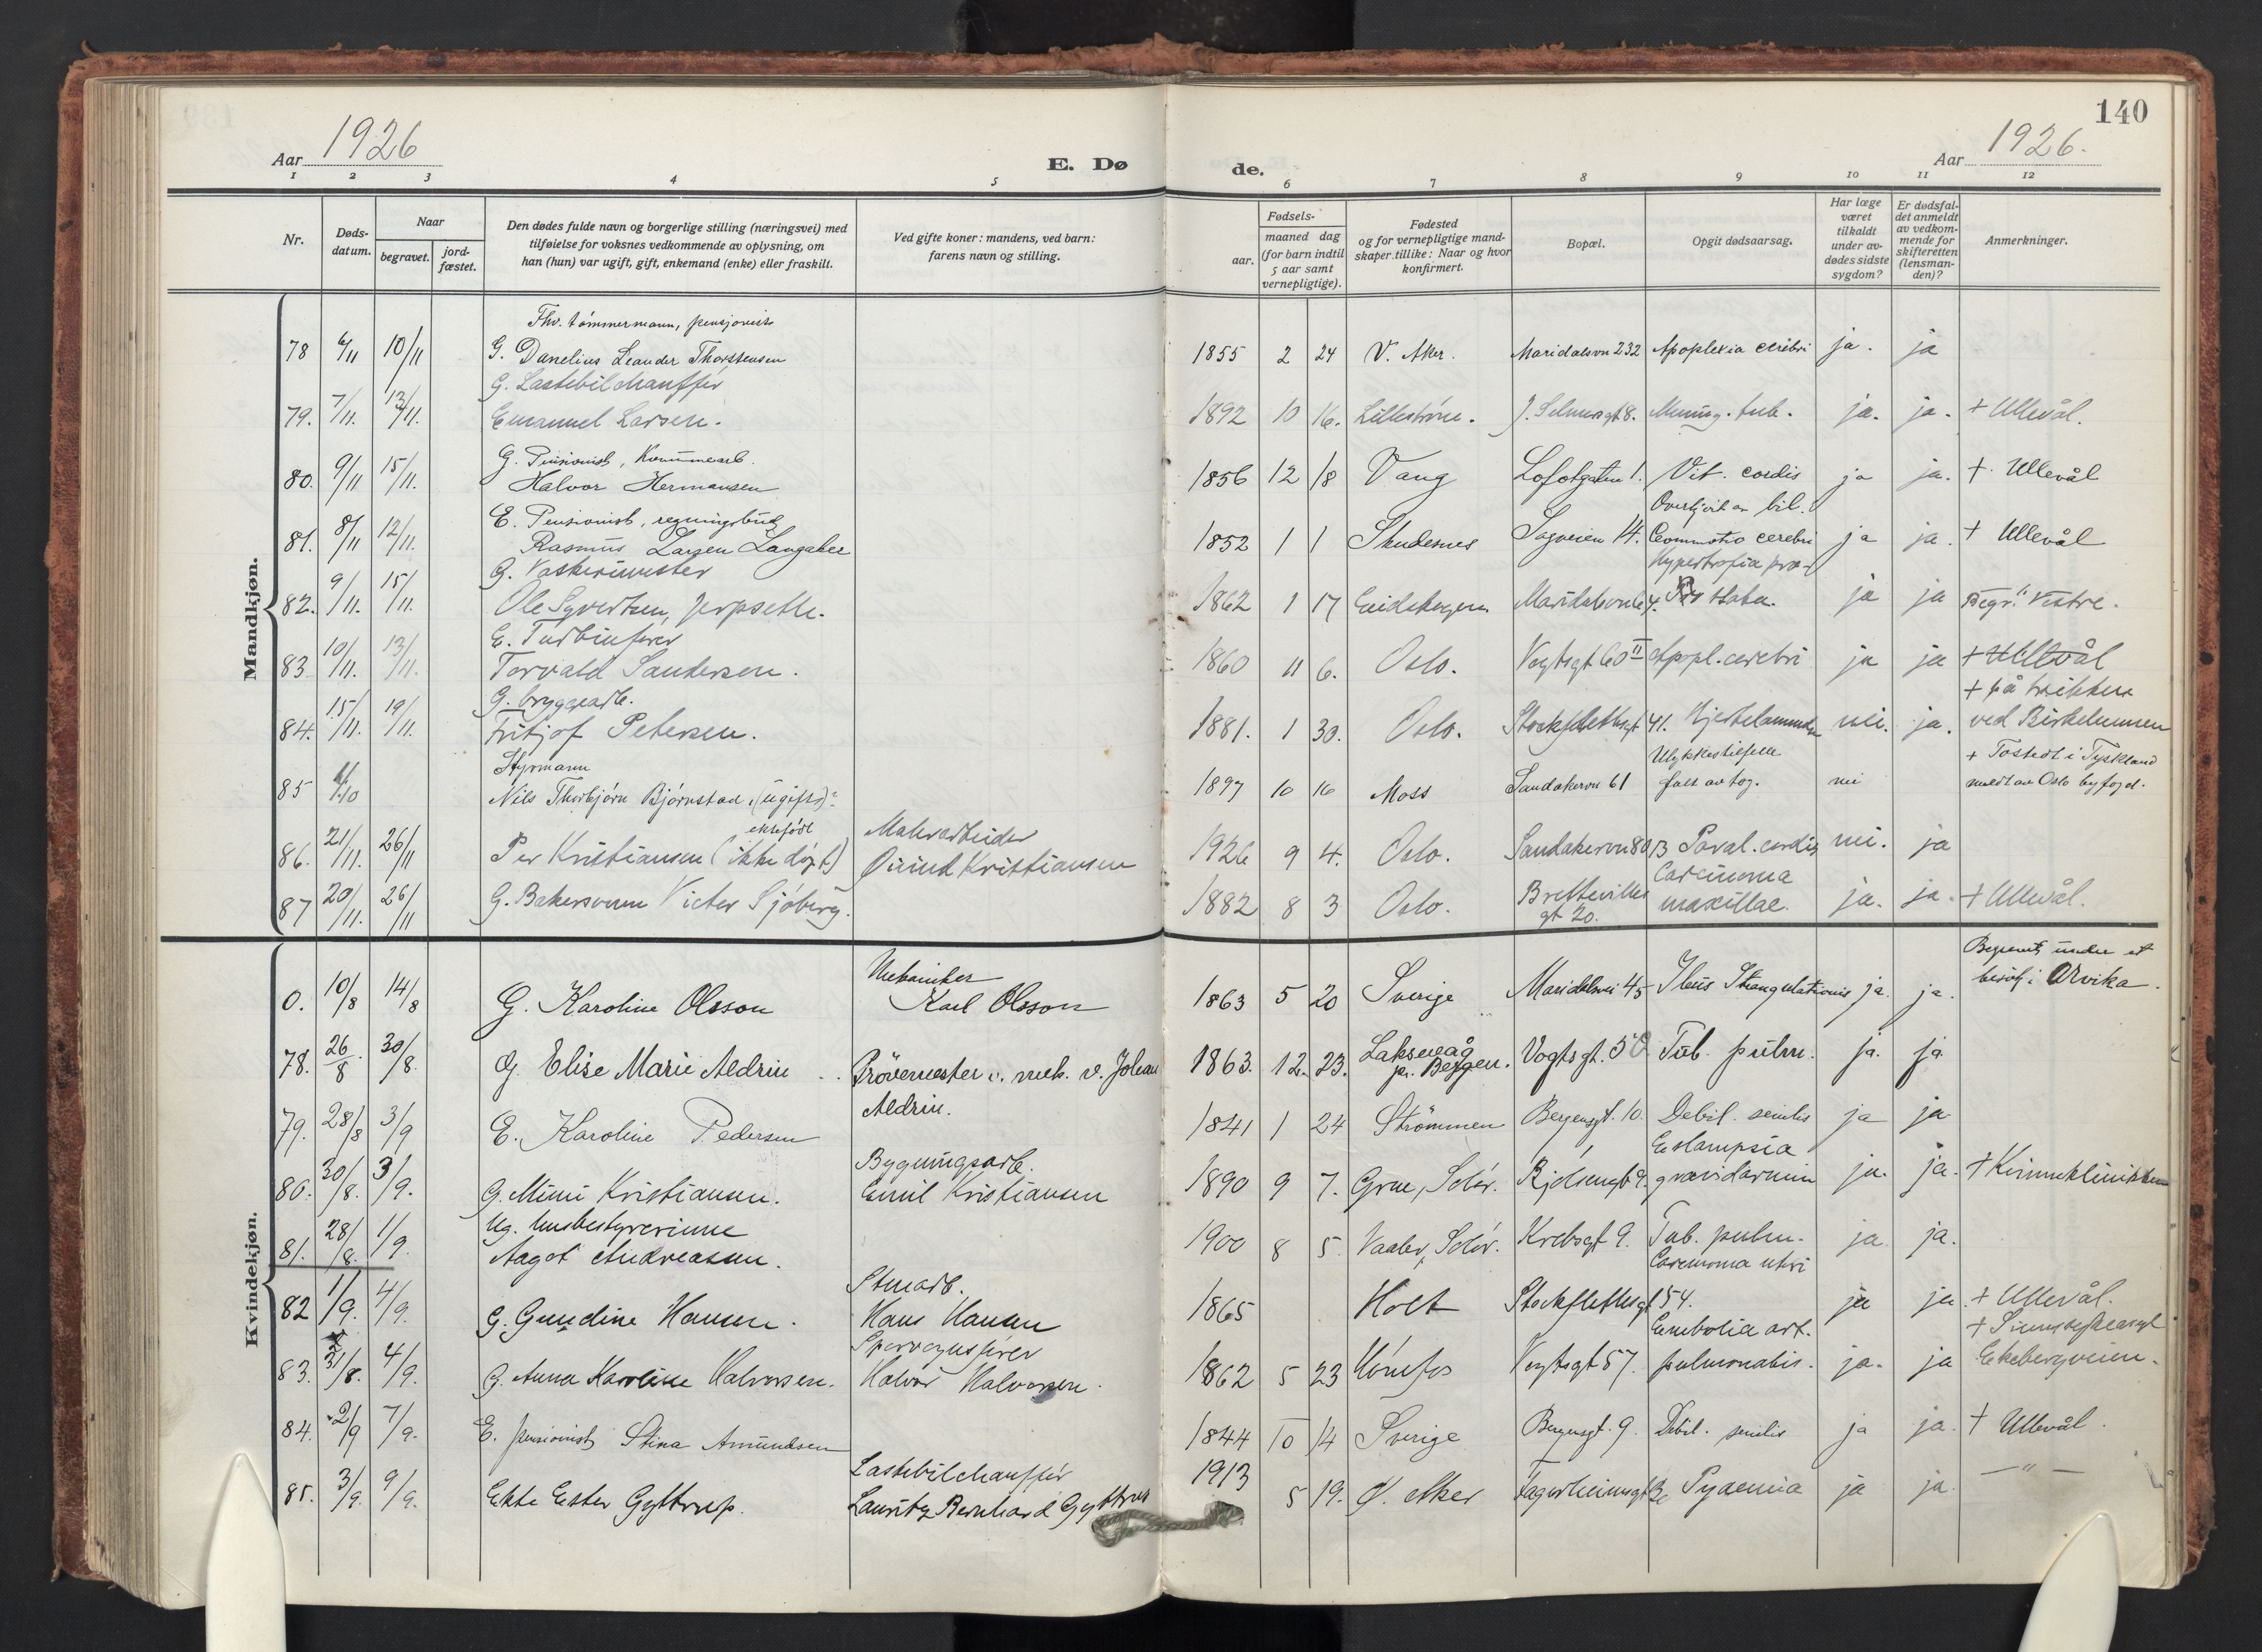 140
Aar 1926
E. Dø
de.
Aar 1926.
1 2 3 4 5 6 7 8 9 10 11 12
Nr.
Døds-
datum.
Naar
begravet.
jord-
fæstet.
Den dødes fulde navn og borgerlige stilling (næringsvei) med
tilføielse for voksnes vedkommende av oplysning, om
han (hun) var ugift, gift, enkemand (enke) eller fraskilt.
Ved gifte koner: mandens, ved barn:
farens navn og stilling.
Fødsels-
aar.
maaned dag
(for barn indtil
5 aar samt
vernepligtige).
Fødested
og for vernepligtige mand-
skaper tillike: Naar og hvor
konfirmert.
Bopæl.
Opgit dødsaarsag.
Har læge
været
tilkaldt
under av-
dødes sidste
sygdom?
Er dødsfal-
det anmeldt
av vedkom-
mende for
skifteretten
(lensman-
den)?
Anmerkninger.
Mandkjøn.
Fhv. tömmermann, pensjonist
78 6/11 10/11 G. Danelius Leander Thorstensen 1855 2 24 V. Aker. Maridalsvn 232 Apoplexia cerebri ja. ja
G. Lastebilchauffør
79. 7/11. 13/11. Emanuel Larsen. 1892 10 16. Lillestrøm. J. Selmersgt 8. Mening. tub. ja. ja. + Ullevål.
G. Pensionist, Kommunearb.
80. 9/11 15/11. Halvor Hermansen 1856 12 18 Vang Lofotgaten 1. Vit. cordis ja ja. +. Ullevål
E. Pensionist, regningsbud Overkjørt av bil.
81. 8/11 12/11. Rasmus Larsen Langaker 1852 1 1 Skudesnes Sagveien 14. Commotio cerebri ja ja. + Ullevål
G. Vaskerimester Hypertrofia pro-
82. 9/11. 15/11. Ole Syvertsen, Jerpseth. 1862 1 17 Eidskogen Maridalsvn 64. stata. ja ja Begr. Vestre.
E. Turbinfører
83 10/11. 13/11. Torvald Sandersen. 1860 11 6. Oslo. Vogtsgt 60 II Appl. cerebri ja ja + Ullevål
G. bryggearb. + på trikken
84. 15/11. 19/11. Fritjof Petersen. 1881. 1 30. Oslo. Stockflethsgt 41. Hjertelammelse nei. ja. ved Birkelunnen
Styrmann Ulykkestilfelle + Tostedt i Tyskland
85 Nils Thorbjørn Bjørnstad (ugift) 1897 10 16 Moss Sandakervn 61 falt av tog. nei meldt av Oslo byfogd.
ektefödt Malerarbeider
86. 21/11. 26/11 Per Kristiansen (ikke döpt) Öivind Kristiansen 1926 9 4. Oslo. Sandakervn 80 Paral. cordis nei. ja
Carcinoma
87 20/11. 26/11 G. Bakersvenn Victor Sjöberg. 1882 8 3 Oslo. Brettevilles gt 20. maxillae. ja. ja. + Ullevål.
Kvindekjøn.
Mekaniker Begravet under et
0. 10/8 14/8 G. Karoline Olsson Karl Olsson 1863 5 20 Sverige Maridalsvei 45 Ileus Strangulationis ja. ja. besøk i Arvika.
78. 26/8. 30/8. G. Elise Marie Aldrin Prövemester v. mek. v. Johan 1863. 12. 23. Laksevaag pr. Bergen. Vogtsgt. 50 Tub. pulm. ja. ja.
Aldrin.
79. 28/8 3/9 E. Karoline Pedersen 1841 1 24 Strömmen Bergensgt. 10. Debil. senilis ja ja
Bygningsarb. Eclampsia
80. 30/8. 3/9. G. Mimi Kristiansen. Emil Kristiansen 1890 9 7. Grue, Solör. Bjölsengt 9. gravidarum ja. ja. + Kvinneklinikken
Ug. husbestyrerinne
81. 28/8. 1/9. Aagot Andreasen. 1900 8 5. Vaaler, Solör. Krebsgt 9. Tub. pulm. ja. ja.
Stuearb. Carcinoma uteri
82 1/9. 4/9. G. Gundine Hansen. Hans Hansen 1865 Holt Stockflethsgt 54. ja ja. + Ullevål.
Sporvognsfører Embolia art. +
83. 31/8. 4/9. G. Anna Karoline Halvorsen. Halvor Halvorsen. 1862 5 23 Hönefos Vogtsgt 57. pulmonalis. ja. ja Ekebergveien.
84. 2/9 7/9. E. pensionist Stina Amundsen 1844 10 14 Sverige Bergensgt. 9. Debil. senilis ja ja. + Ullevål.
Lastebilchauffør
85. 3/9. 9/9. Ekte Ester Gyttrup. Lauritz Bernhard Gyttrup 1913 5 19. Ø. Aker Fagerheimsgt Pyaemia ja ja. — " —